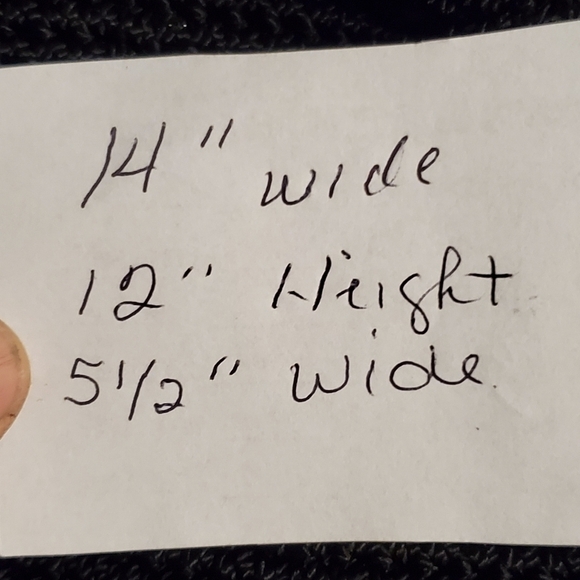 14" wide
12" Height
5 1/2" Wide